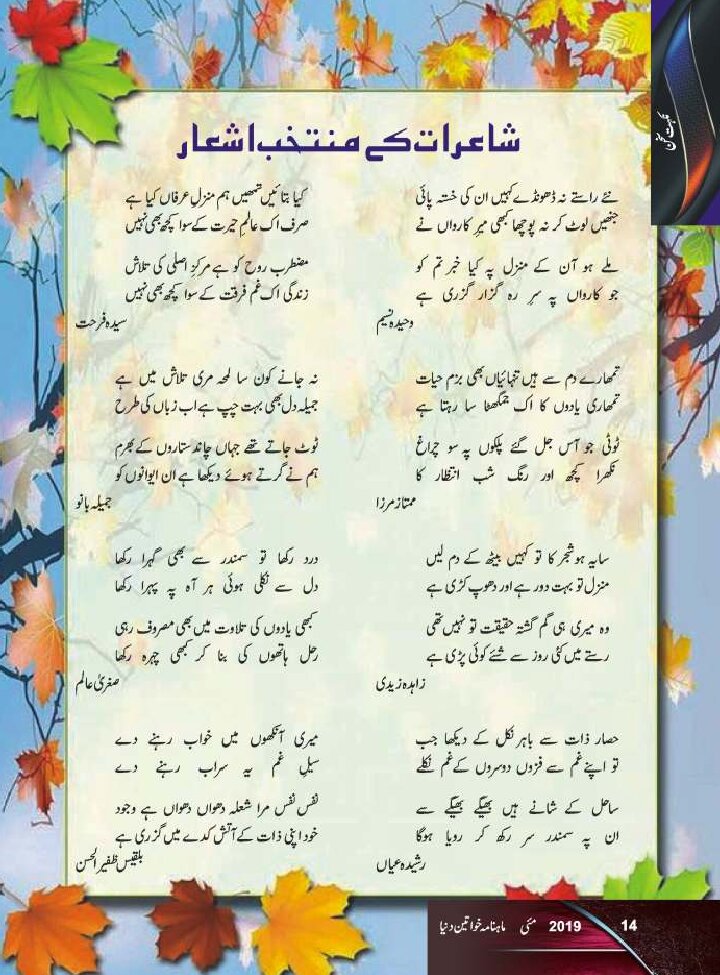 نکہت سخن
شاعرات کے منتخب اشعار
نئے راستے نہ ڈھونڈے کہیں ان کی خستہ پائی
جنھیں لوٹ کر نہ پوچھا کبھی میرِ کارواں نے
ملے ہو آن کے منزل پہ کیا خبر تم کو
جو کارواں پہ سرِ رہ گزار گزری ہے
وحیدہ نسیم
تمھارے دم سے ہیں تنہائیاں بھی بزم حیات
تمھاری یادوں کا اک جمگھٹا سا رہتا ہے
ٹوٹی جو آس جل گئے پلکوں پہ سو چراغ
نکھرا کچھ اور رنگ شب انتظار کا
ممتاز مرزا
سایہ ہو شجر کا تو کہیں بیٹھ کے دم لیں
منزل تو بہت دور ہے اور دھوپ کڑی ہے
وہ میری ہی گم گشتہ حقیقت تو نہیں تھی
رستے میں کئی روز سے شئے کوئی پڑی ہے
زاہدہ زیدی
حصار ذات سے باہر نکل کے دیکھا جب
تو اپنے غم سے فزوں دوسروں کے غم نکلے
ساحل کے شانے ہیں بھیگے بھیگے سے
ان پہ سمندر سر رکھ کر رویا ہوگا
رشیدہ عیاں
کیا بتائیں تمھیں ہم منزلِ عرفاں کیا ہے
صرف اک عالمِ حیرت کے سوا کچھ بھی نہیں
مضطرب روح کو ہے مرکزِ اصلی کی تلاش
زندگی اک غم فرقت کے سوا کچھ بھی نہیں
سیدہ فرحت
نہ جانے کون سا لمحہ مری تلاش میں ہے
جمیلہ دل بھی بہت چپ ہے اب زباں کی طرح
ٹوٹ جاتے تھے جہاں چاند ستاروں کے بھرم
ہم نے گرتے ہوئے دیکھا ہے ان ایوانوں کو
جمیلہ بانو
درد رکھا تو سمندر سے بھی گہرا رکھا
دل سے نکلی ہوئی ہر آہ پہ پہرا رکھا
کبھی یادوں کی تلاوت میں بھی مصروف رہی
رحل ہاتھوں کی بنا کر کبھی چہرہ رکھا
صغریٰ عالم
میری آنکھوں میں خواب رہنے دے
سیلِ غم یہ سراب رہنے دے
نفس نفس مرا شعلہ دھواں دھواں ہے وجود
خود اپنی ذات کے آتش کدے میں گزری ہے
بلقیس ظفیر الحسن
ماہنامہ خواتین دنیا مئی 2019 14